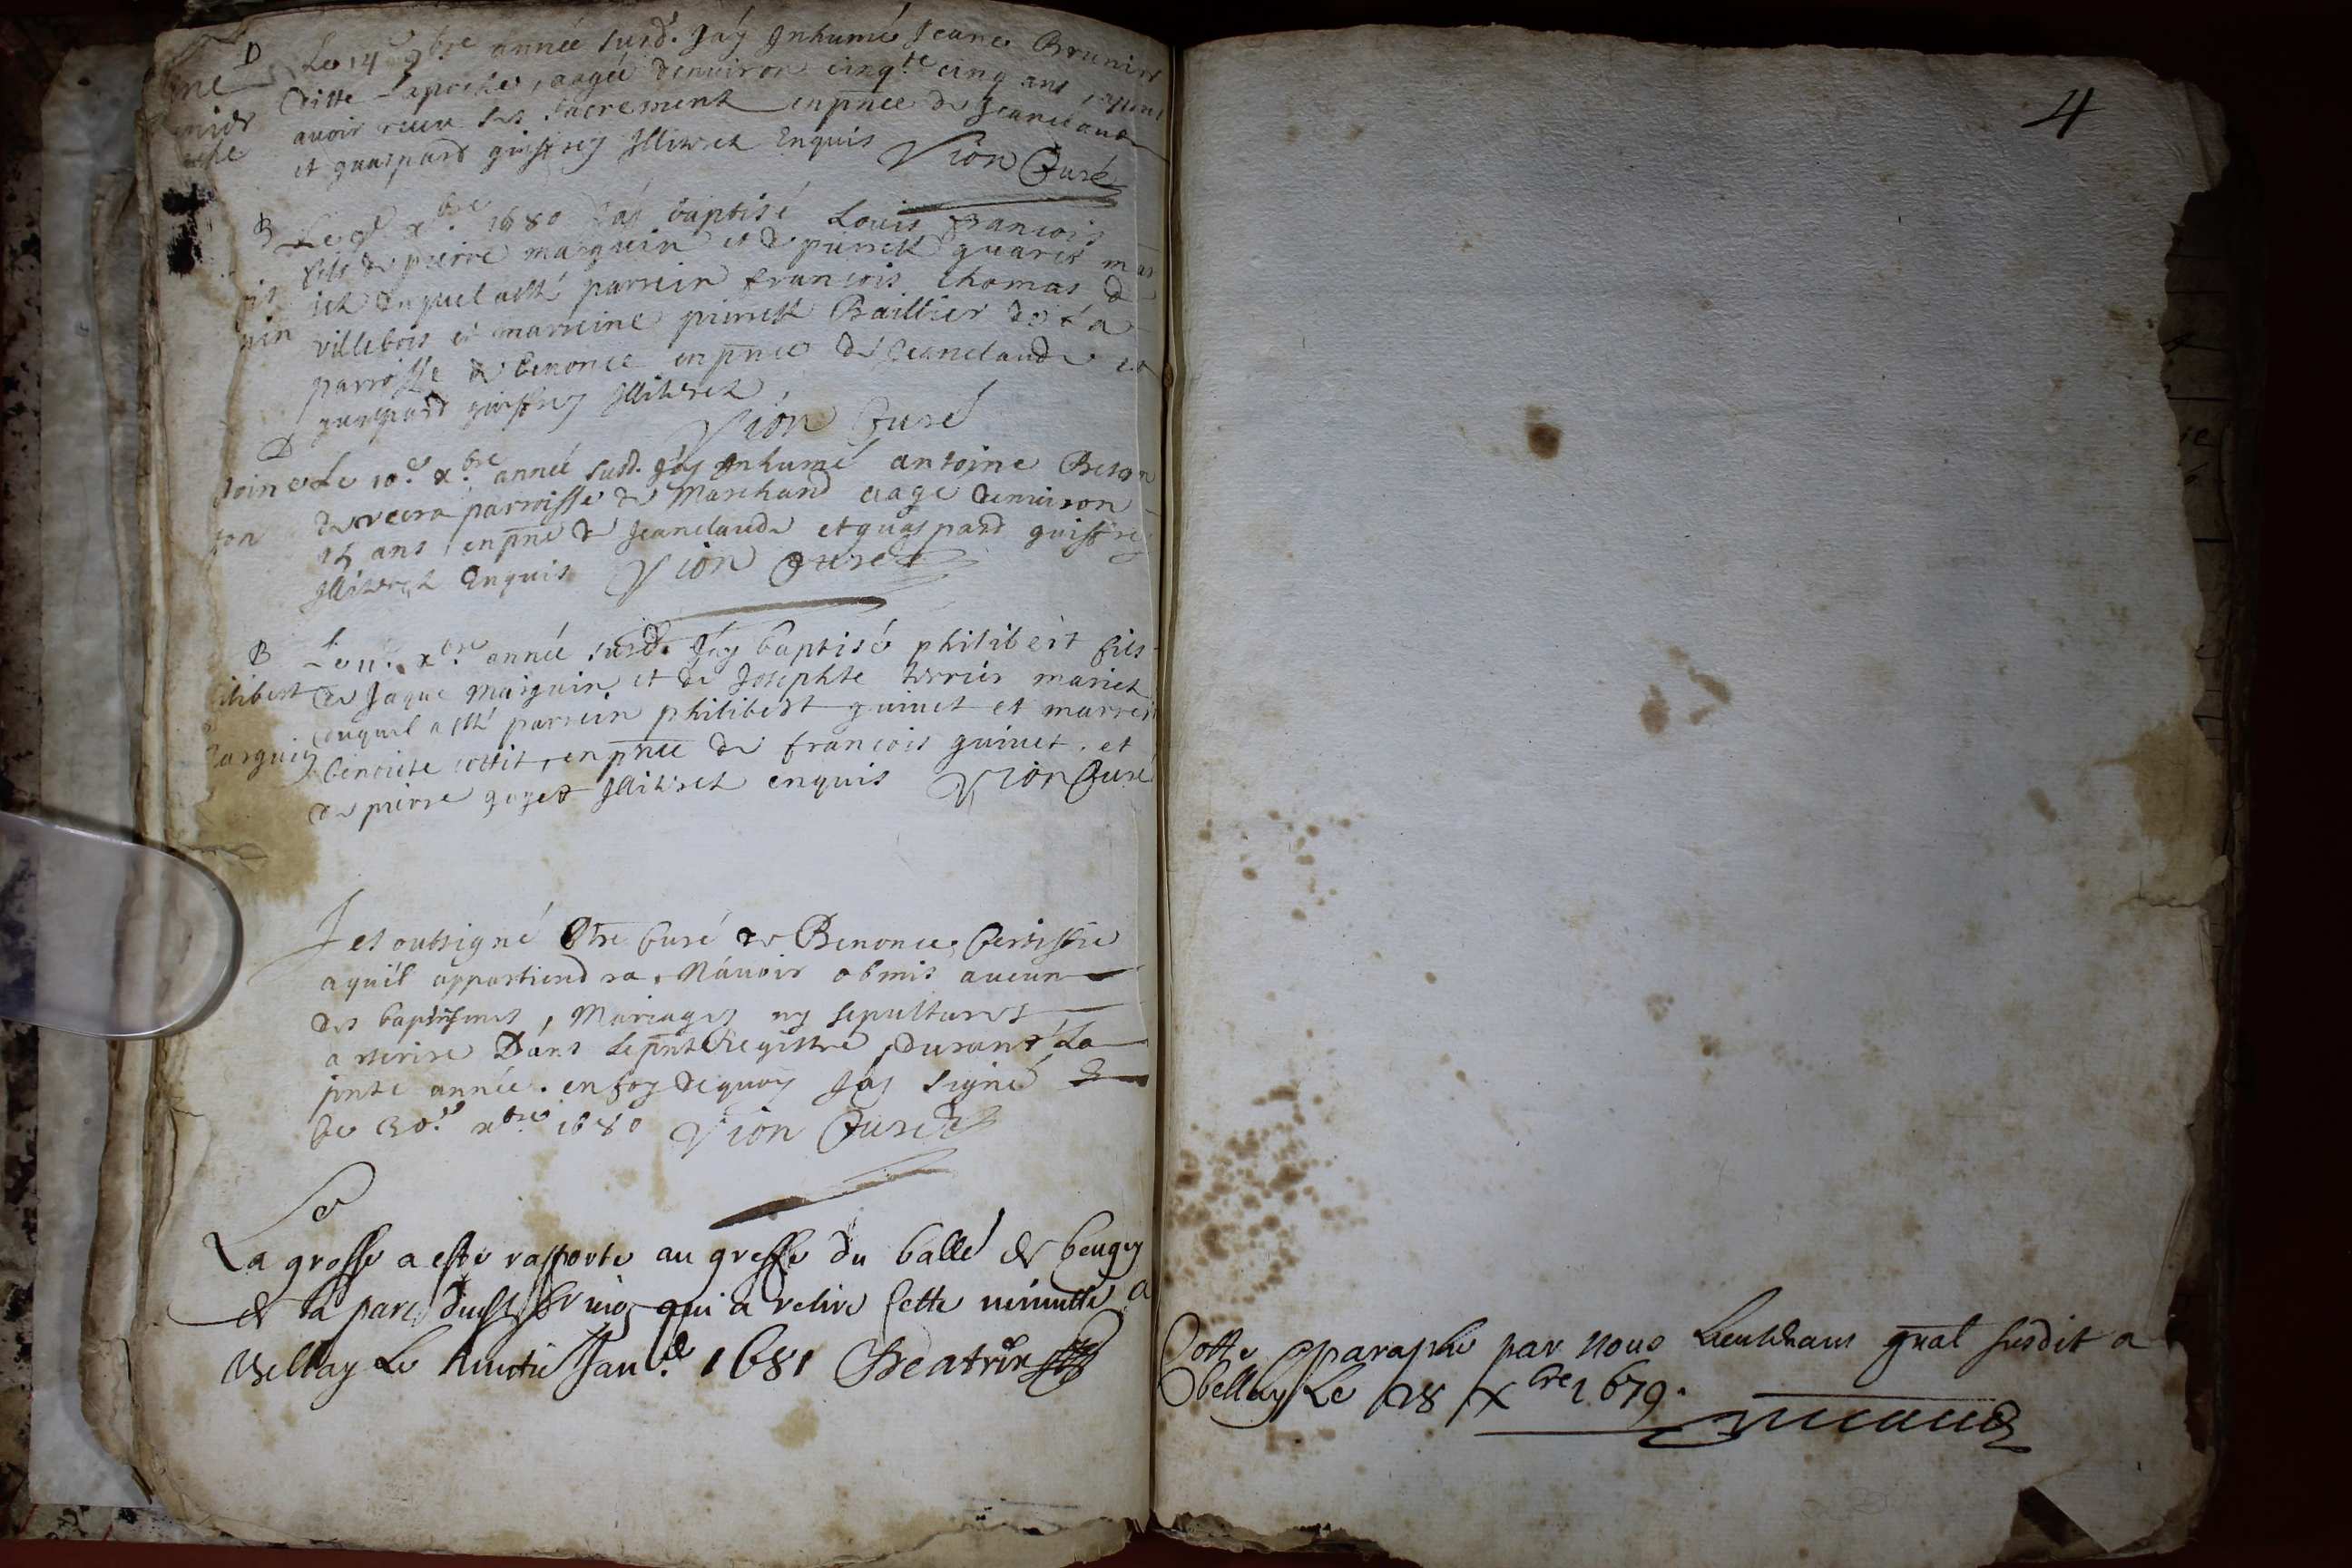 D
Le 14e 9bre année susd. Jáy Inhumé Jeane Brunier
ditte Laproche, aagée denuiron cinqte cinq ans, apres
auoir receu les sacrements enpnce de Jeanclaude
et guaspard guiffrey Illiteres Enquis Vion Curé
B
Le 9e xbre 1680 Jay baptisé Louis francois
fils de pierre marguin et de pierrette guaret mar
iez duquel a esté parrein francois thomas de
villebois et marreine pierrette Baillier de La
parroisse de benonce enpnce de Jeanclaude et
guaspard guiffrey Illiteres
Vion Curé
D
Le 10e xbre année susd. Jay Inhumé antoine Beton
parroisse de Marchand aagé denuiron
15 ans, enpnce de Jeanclaude et guaspard guiffrey
Illiteres Enquis Vion Curé
B
Le 11. xbre année susd. Jay baptisé philibert fils
ilibert
de Jaque Marguin et de Josephte terrier mariez
duquel a esté parrein philibert guinet et marrein
arguin
benoite cottit, enpnce de francois guinet. et
de pierre goyet Illiteres enquis Vion Curé
Jesoubsigné Ptre Curé de Benonce, Certiffie
aquil appartiendra, Náuoir obmis aucun
des baptismes, Mariages ny sepultures
a rescrire Dans Lepnt Registre, Durant La
pnte année. enfoy dequoy Jay signé
ce 30e xbre 1680 Vion Curé
La grosse a esté rapporté au greffe du balle de beugey
de la part dudit Sr vion qui a retiré cette minutte a
Belley Le huictie Janve. 1681 Beatrix
4
Cotte paraphe par nous Lieutenant gnal susdit a
Belley Le 28 xbre 1679.